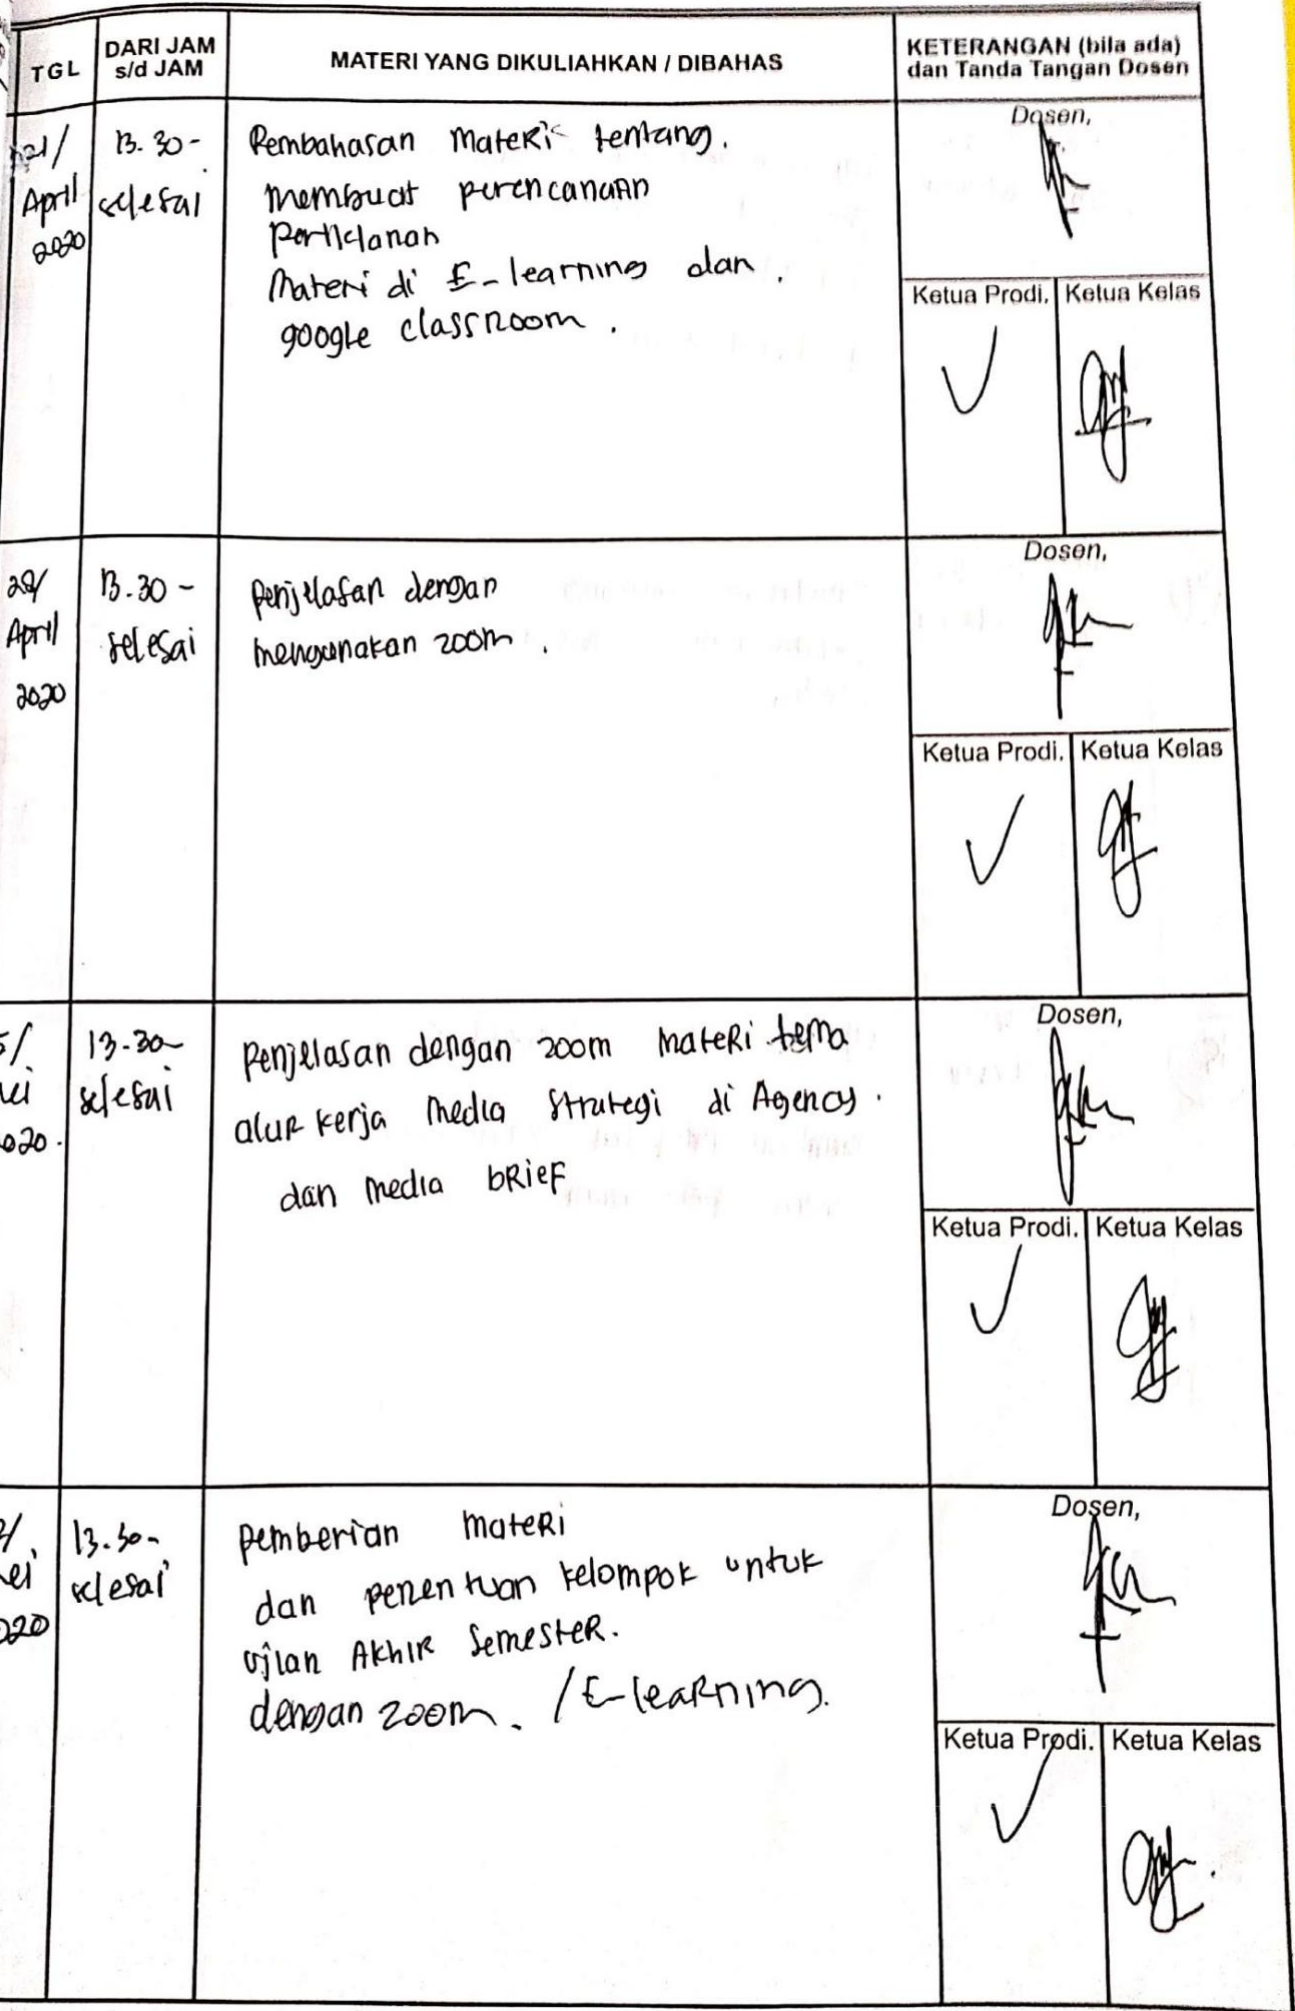 TGL
DARI JAM
s/d JAM
MATERI YANG DIKULIAHKAN / DIBAHAS
KETERANGAN (bila ada)
dan Tanda Tangan Dosen
21/
April
2020
13.30 -
selesai
Pembahasan Materi tentang.
Membuat perencanaan
Periklanan
Materi di E-learning dan .
google classroom .
Dosen,
Ketua Prodi.
Ketua Kelas
28/
April
2020
13.30 -
selesai
Penjelasan dengan
mengunakan zoom .
Dosen,
Ketua Prodi.
Ketua Kelas
5/
ei
020.
13-30-
selesai
Penjelasan dengan zoom Materi tema
alur kerja Media Strategi di Agency .
dan media brief
Dosen,
Ketua Prodi.
Ketua Kelas
ei
020
13.30-
selesai
Pemberian Materi
dan penentuan kelompok untuk
Ujian Akhir Semester.
dengan zoom. / E-learning.
Dosen,
Ketua Prodi.
Ketua Kelas